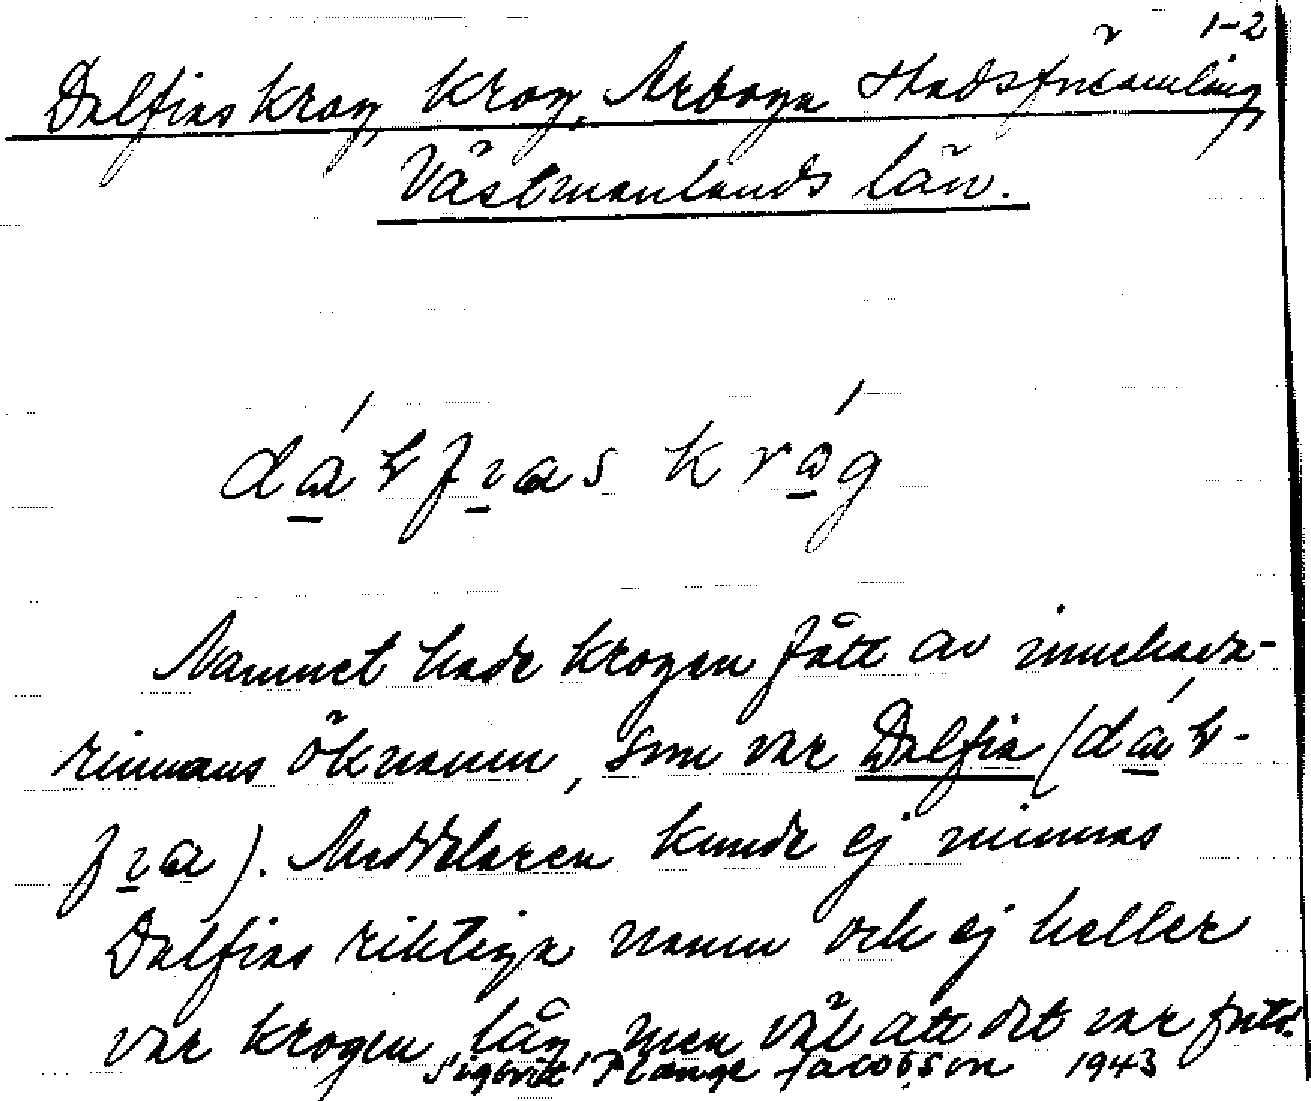 1-2
Dalfias krog, krog, Arboga stadsförsamling,
Västmanlands län.
dálfıas kråg
Namnet hade krogen fått av inneheva-
rinnans öknamn, som var Dalfia (dál-
fıa). Meddelaren kunde ej minnas
Dalfias riktiga namn och ej heller
var krogen låg, men väl att det var
Plange Jacobson 1943